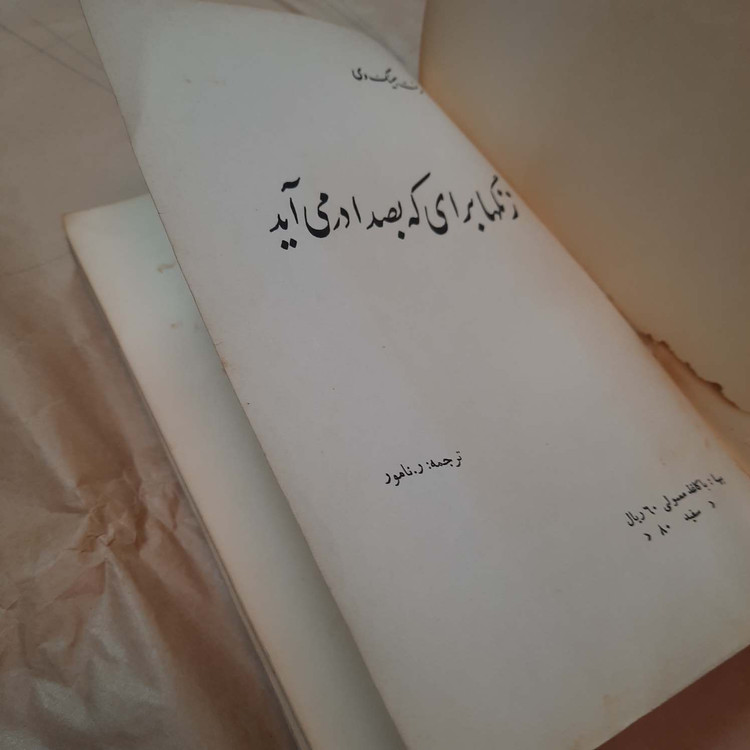 همینگ‌وی
زنگها برای که بصدا درمی‌آید
ترجمه: ر.نامور
بها: با کاغذ معمولی ۶۰ ریال
» سفید ۸۰ »